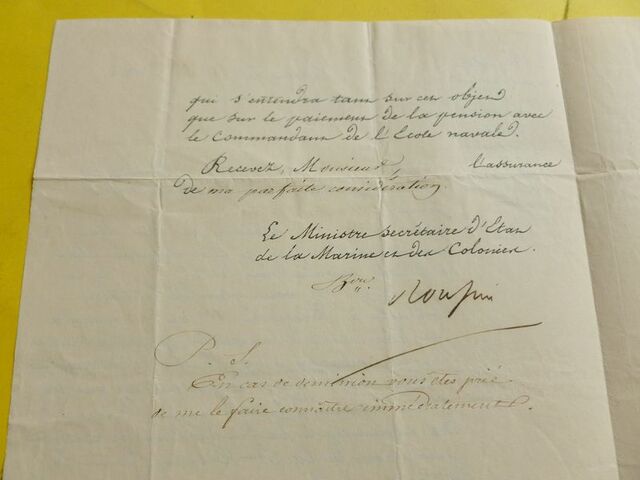 qui s'entendra tant sur cet objet
que sur le paiement de la pension avec
le Commandant de l'Ecole navale.
Recevez, Monsieur, l'assurance
de ma parfaite considération.
Le Ministre Secrétaire d'Etat
de la Marine et des Colonies.
Bon
Roussin
P. S.
En cas de démission vous êtes prié
de me le faire connaître immédiatement.